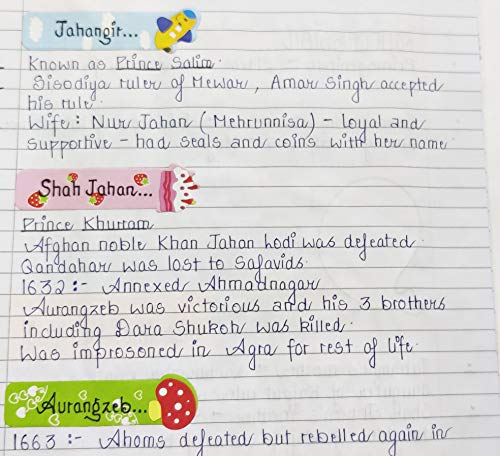 Jahangir...
Known as Prince Salim.
Sisodiya ruler of Mewar, Amar Singh accepted
his rule.
Wife: Nur Jahan (Mehrunnisa) - loyal and
supportive - had seals and coins with her name.
Shah Jahan...
Prince Khurram
Afghan noble Khan Jahan Lodi was defeated.
Qandahar was lost to Safavids.
1632 :- Annexed Ahmadnagar
Aurangzeb was victorious and his 3 brothers
including Dara Shukoh was killed.
Was improsoned in Agra for rest of life.
Aurangzeb...
1663 :- Ahoms defeated but rebelled again in